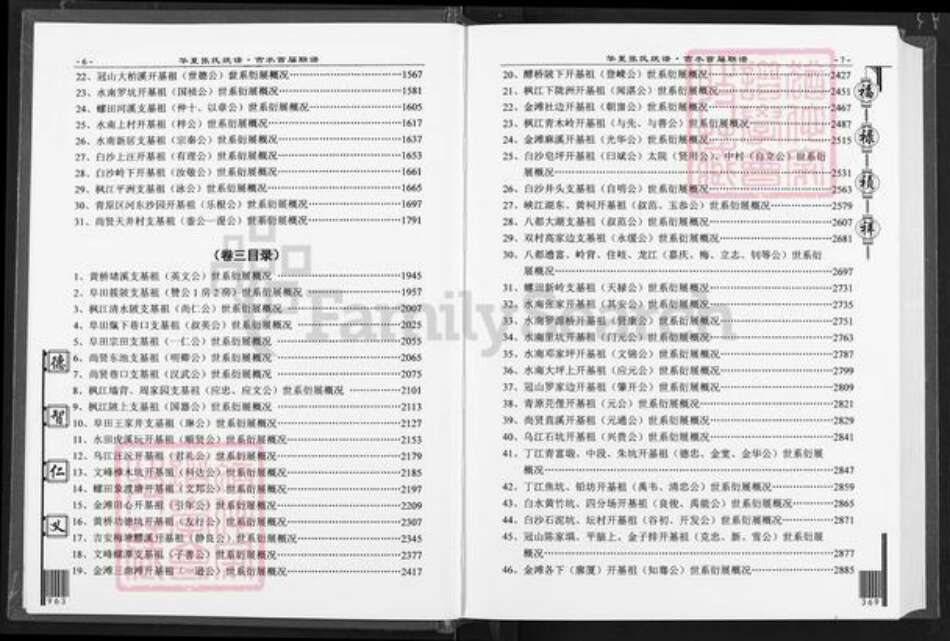 - 6 -
华夏张氏统谱·吉水首届联谱
22、冠山大柏溪开基祖（世德公）世系衍展概况……1567
23、水南罗坑开基祖（国桢公）世系衍展概况……1581
24、螺田河溪支基祖（仲十、以章公）世系衍展概况……1605
25、水南上村开基祖（梓公）世系衍展概况……1617
26、水南新居支基祖（宗泰公）世系衍展概况……1637
27、白沙上汪开基祖（有理公）世系衍展概况……1653
28、白沙岭下开基祖（汝敬公）世系衍展概况……1661
29、枫江平洲支基祖（泳公）世系衍展概况……1665
30、青原区河东沙园开基祖（乐根公）世系衍展概况……1697
31、尚贤天井村支基祖（公一漫公）世系衍展概况……1791
（卷三目录）
1、黄桥堵溪支基祖（英文公）世系衍展概况……1945
2、阜田陂支基祖（赞公1房2房）世系衍展概况……1957
3、枫江清水陂支基祖（尚仁公）世系衍展概况……2007
4、阜田下巷口支基祖（叔英公）世系衍展概况……2025
5、阜田宗田支基祖（一仁公）世系衍展概况……2055
6、尚贤东池支基祖（明卿公）世系衍展概况……2065
7、尚贤巷口支基祖（汉武公）世系衍展概况……2075
8、枫江墙背、周家园支基祖（应忠、应文公）世系衍展概况……2101
9、枫江陂上支基祖（国器公）世系衍展概况……2113
10、阜田王家井支基祖（琳公）世系衍展概况……2127
11、水田虎溪玩开基祖（顺贤公）世系衍展概况……2153
12、乌江汪沅开基祖（君礼公）世系衍展概况……2179
13、文峰樟木坑开基祖（科达公）世系衍展概况……2185
14、螺田象渡塘开基祖（文邦公）世系衍展概况……2197
15、金滩田心开基祖（引年公）世系衍展概况……2209
16、黄桥功德坑开基祖（友行公）世系衍展概况……2307
17、吉安梅塘溪开基祖（静良公）世系衍展概况……2345
18、文峰潭支基祖（子善公）世系衍展概况……2377
19、金滩三曲滩开基祖（一逊公）世系衍展概况……2417
德
智
仁
义
963
华夏张氏统谱·吉水首届联谱
- 7 -
20、醪桥陂下开基祖（登嵘公）世系衍展概况……2427
21、枫江下陇洲开基祖（闻湛公）世系衍展概况……2451
22、金滩社边开基祖（朝崮公）世系衍展概况……2467
23、枫江青木岭开基祖（与先、与善公）世系衍展概况……2487
24、金滩麻溪开基祖（光华公）世系衍展概况……2515
25、白沙皂坪开基祖（曰斌公）太院（贤用公）、中村（自立公）世系衍
展概况……2531
26、白沙井头支基祖（自明公）世系衍展概况……2563
27、峡江湖东、黄柯开基祖（叔范、玉恭公）世系衍展概况……2579
28、八都大湖支基祖（叔范公）世系衍展概况……2607
29、双村高家边支基祖（永缓公）世系衍展概况……2681
30、八都澧富、岭背、住岐、龙江（嘉庆、梅、立志、钊等公）世系衍
展概况……2697
31、螺田新岭支基祖（天禄公）世系衍展概况……2731
32、水南张家开基祖（其安公）世系衍展概况……2735
33、水南罗源洲开基祖（贤康公）世系衍展概况……2751
34、水南里坑开基祖（门元公）世系衍展概况……2763
35、水南邓家坪开基祖（文锦公）世系衍展概况……2787
36、水南大坪上开基祖（应元公）世系衍展概况……2799
37、冠山罗家边开基祖（肇开公）世系衍展概况……2809
38、青原芫俚开基祖（元公）世系衍展概况……2821
39、尚贤直溪开基祖（元通公）世系衍展概况……2829
40、乌江石坑开基祖（兴贵公）世系衍展概况……2841
41、丁江青富瑕、中段、朱坑开基祖（德忠、金堂、金华公）世系衍展
概况……2847
42、丁江焦坑、铅坊开基祖（禹韦、清忠公）世系衍展概况……2859
43、白水黄竹坑、四分场开基祖（良俊、禹能公）世系衍展概况……2865
44、白沙石泥坑、坛村开基祖（谷初、开发公）世系衍展概况……2871
45、冠山陈家塅、平脑上、金子排开基祖（克忠、新、雪公）世系衍展
概况……2877
46、金滩各下（廓厦）开基祖（知骞公）世系衍展概况……2885
福
禄
祯
祥
369
FamilySearch